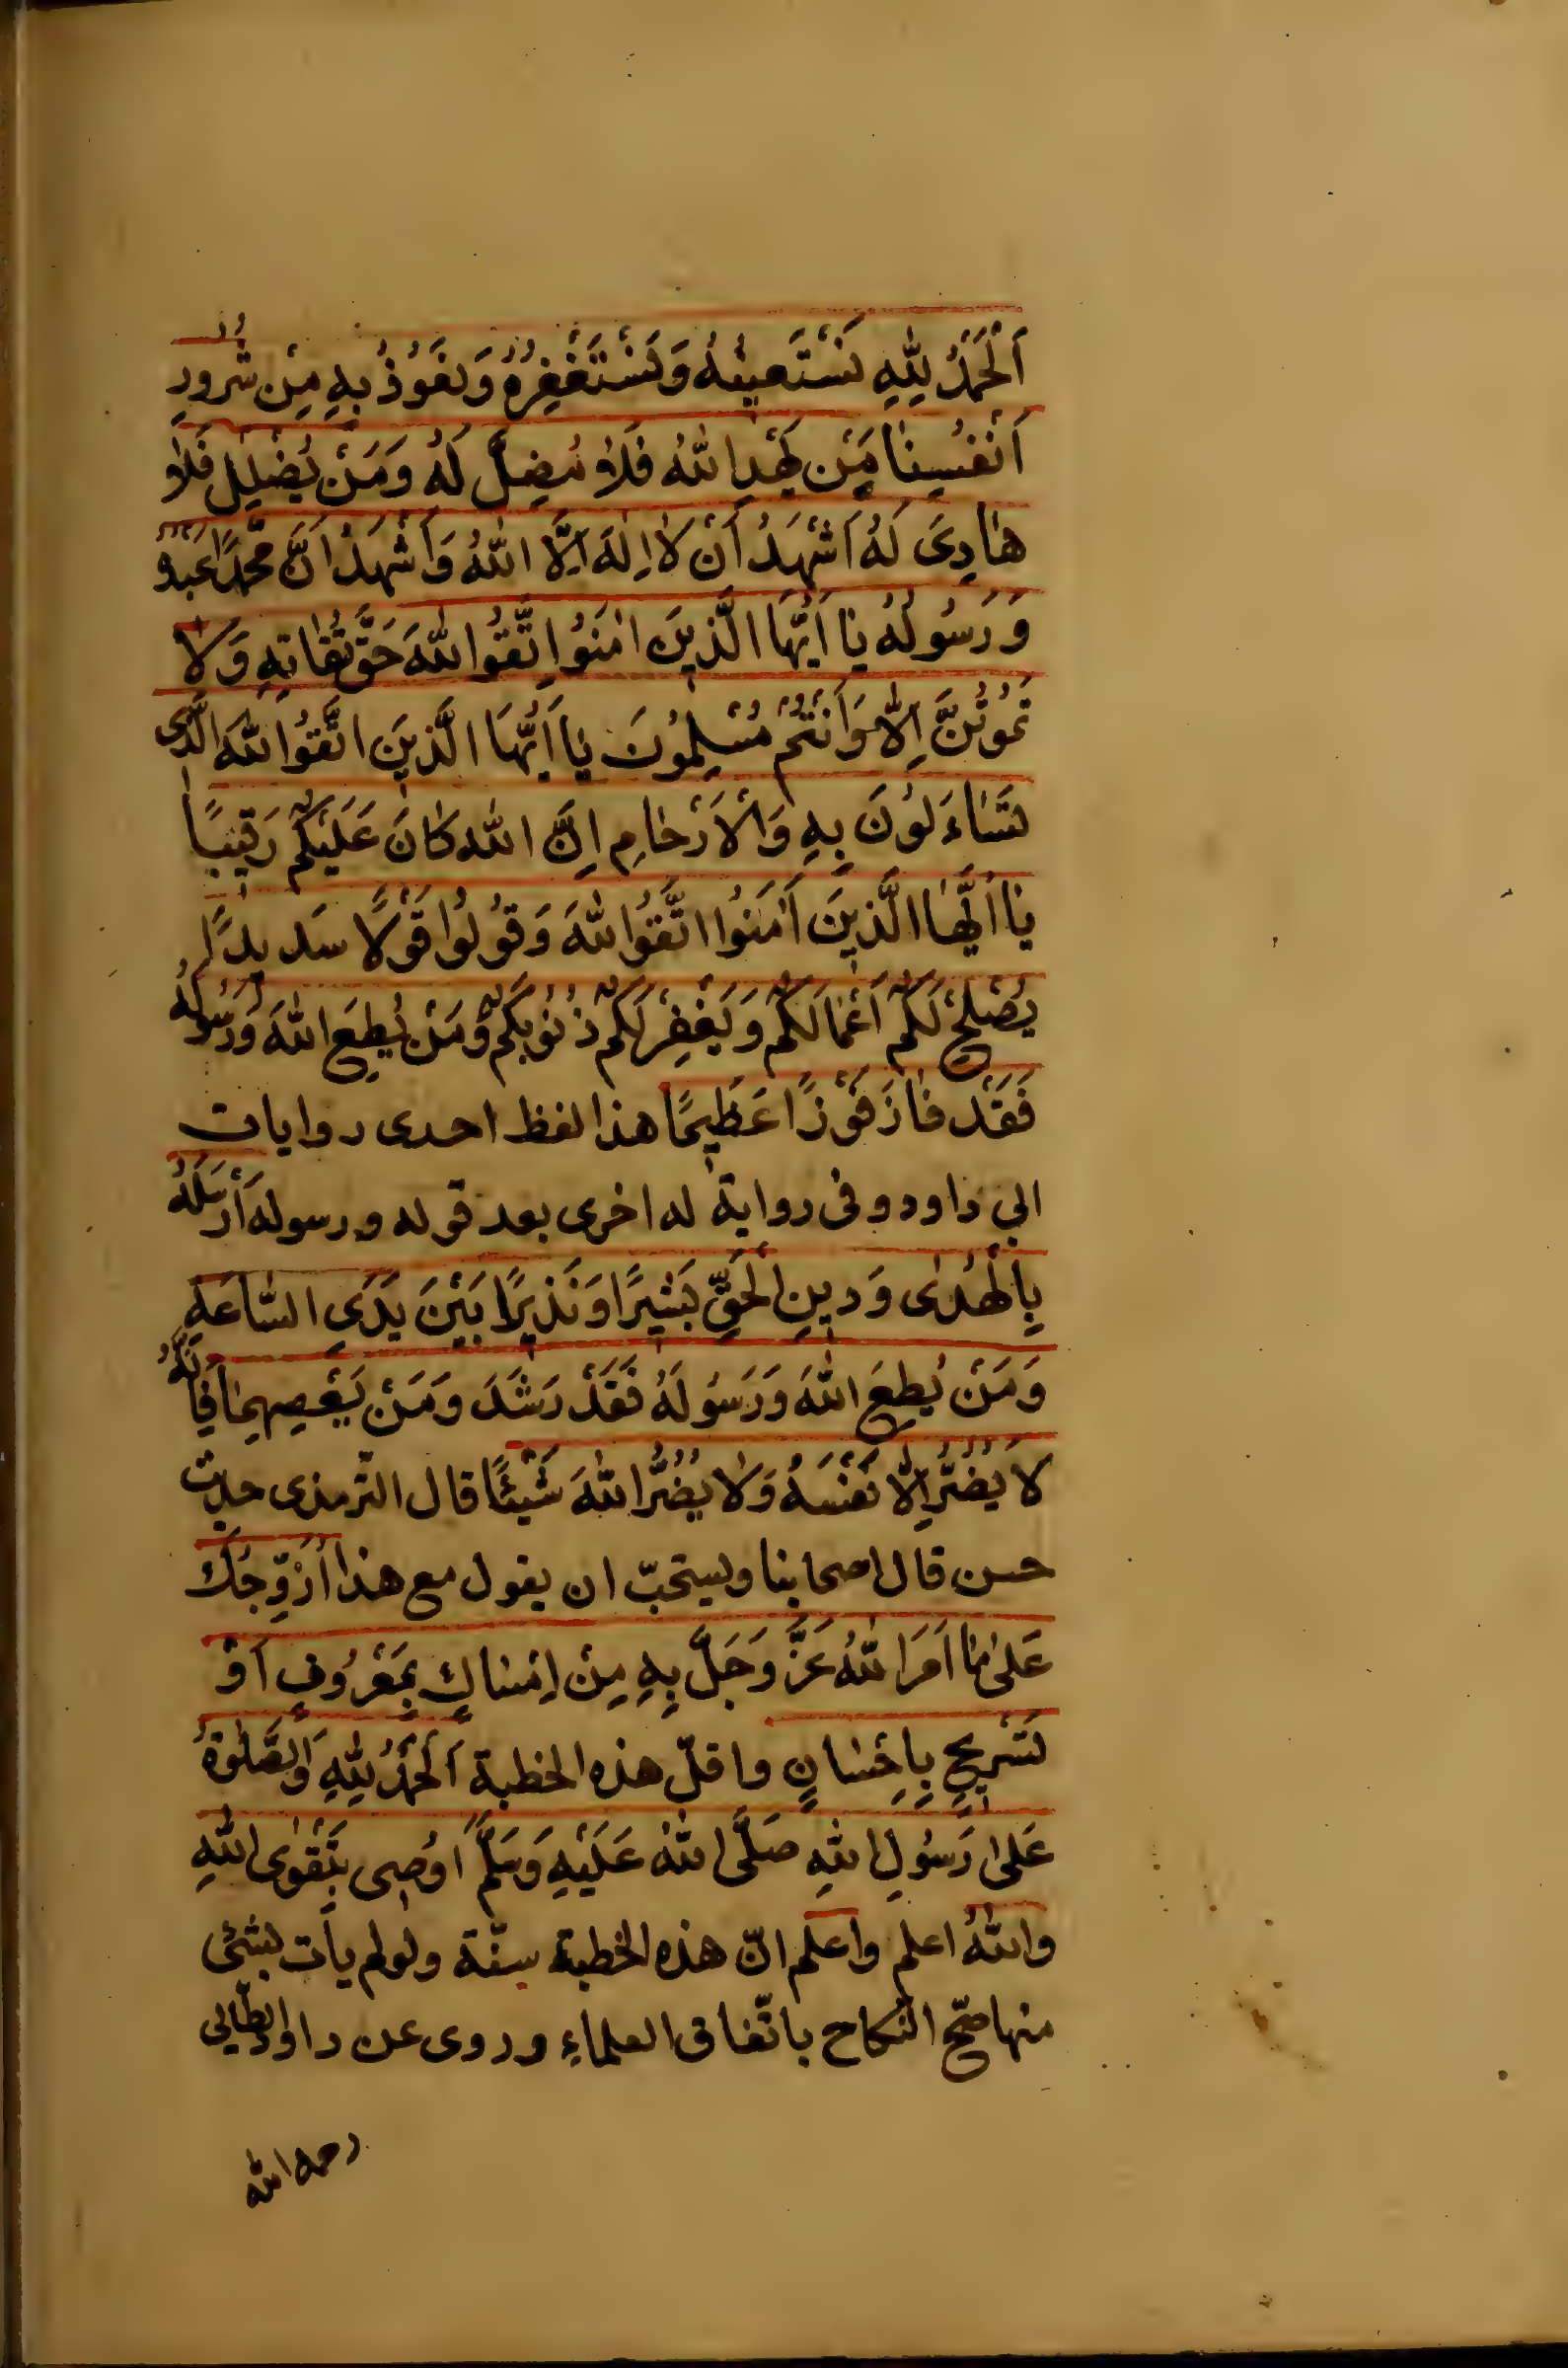 اَلْحَمْدُ لِلّٰهِ نَسْتَعينُهُ وَنَسْتَغْفِرُهُ وَنَعُوذُ بِهِ مِنْ شُرُورِ
اَنْفُسِنٰا مَنْ يَهْدِ اللّٰهُ فَلاٰ مُضِلَّ لَهُ وَمَنْ يُضْلِلْ فَلاٰ
هٰادِىَ لَهُ اَشْهَدُ اَنْ لاٰ اِلٰهَ اِلَّا اللّٰهُ وَاَشْهَدُ اَنَّ مُحَمَّدًا عَبْدُهُ
وَرَسُولُهُ يٰا اَيُّهَا الَّذينَ اٰمَنُوا اِتَّقُوا اللّٰهَ حَقَّ تُقٰاتِهِ وَلاٰ
تَمُوتُنَّ اِلاّٰ وَاَنْتُمْ مُسْلِمُونَ يٰا اَيُّهَا الَّذينَ اتَّقُوا اللّٰهَ الَّذى
تَسٰاءَلُونَ بِهِ وَالْاَرْحٰامِ اِنَّ اللّٰه كٰانَ عَلَيْكُمْ رَقيبًا
يٰا اَيُّهٰا الَّذينَ اٰمَنُوا اتَّقُوا اللّٰهَ وَقُولُوا قَوْلًا سَديدًا
يُصْلِحْ لَكُمْ اَعْمٰالَكُمْ وَيَغْفِرْ لَكُمْ ذُنُوبَكُمْ وَمَنْ يُطِعِ اللّٰهَ وَرَسُولَهُ
فَقَدْ فٰازَ فَوْزًا عَظيمًا هذا لفظ احدى روايات
ابي داود وفى رواية له اخرى بعد قوله ورسوله اَرْسَلَهُ
بِالْهُدٰى وَدينِ الْحَقِّ بَشيرًا وَنَذيرًا بَيْنَ يَدَىِ السّٰاعَةِ
وَمَنْ يُطِعِ اللّٰهَ وَرَسُولَهُ فَقَدْ رَشَدَ وَمَنْ يَعْصِهِمٰا فَاِنَّهُ
لاٰ يَضُرُّ اِلّاٰ نَفْسَهُ وَلاٰ يَضُرُّ اللّٰهَ شَيْئًا قال التّرمذى حديث
حسن قال اصحابنا ويستحبّ ان يقول مع هذا اُزَوِّجُكَ
عَلىٰ مٰا اَمَرَ اللّٰهُ عَزَّ وَجَلَّ بِهِ مِنْ اِمْسٰاكٍ بِمَعْرُوفٍ اَوْ
تَسْريحٍ بِاِحْسٰانٍ واقلّ هذه الخطبة اَلْحَمْدُ لِلّٰهِ وَالصَّلٰوةُ
عَلىٰ رَسُولِ اللّٰهِ صَلَّى اللّٰهُ عَلَيْهِ وَسَلَّمَ اُوصى بِتَقْوٰى اللّٰهِ
واللّٰهُ اعلم واعلم انّ هذه الخطبة سنّة ولو لم يأت بشئ
منها صحّ النّكاح باتّفاق العلماءِ وروى عن داود الظّاهري
رحمه الله